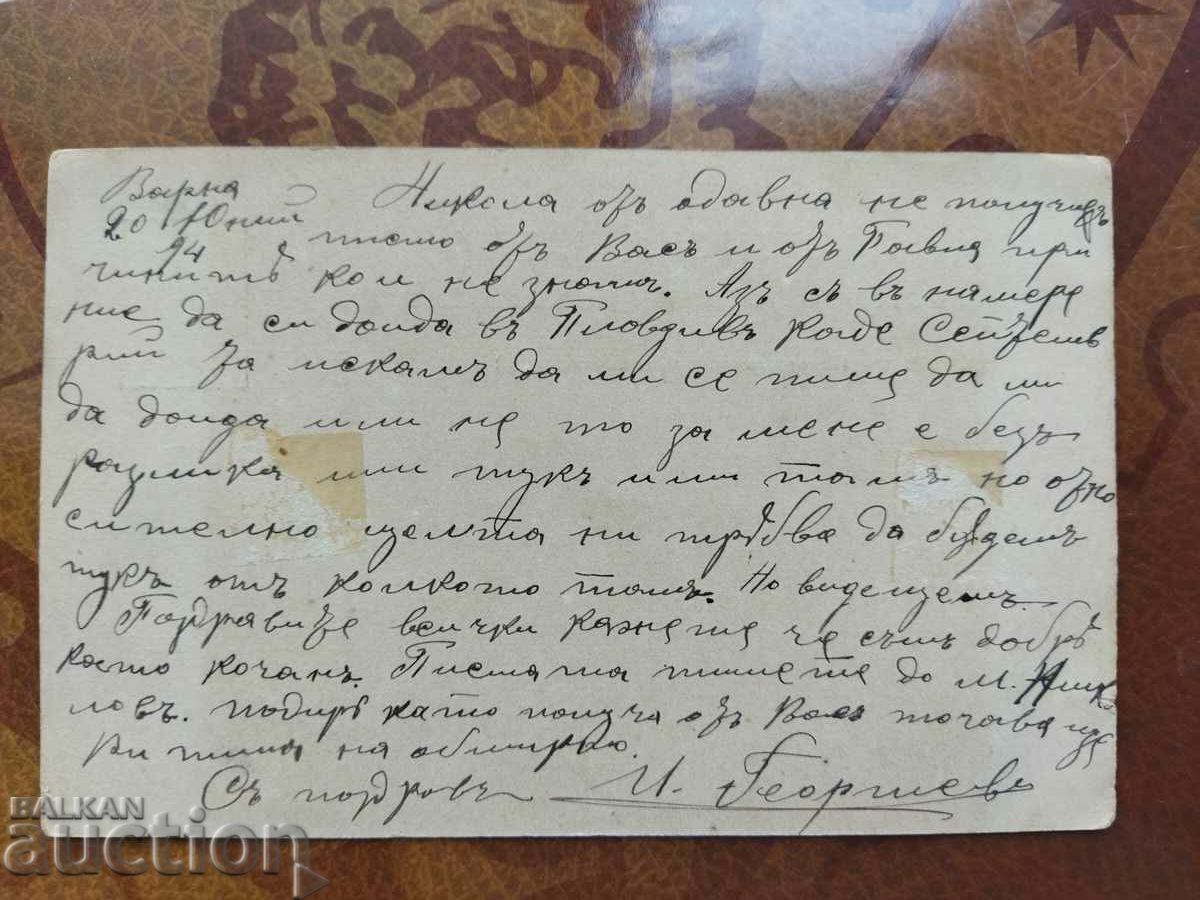 Варна
20 Юний
94
Никола отъ одавна не получихъ
писмо отъ Васъ и отъ Павла при
чинитѣ кои не знамъ. Азъ съ въ намере
ние да си дойда въ Пловдивъ къде Септемв
рий та искамъ да ми се пише да ли
да дойда или не то за мене е безъ
разлика или тукъ или тамъ но отно
сително цельта ни трѣбва да бѫдемъ
тукъ отъ колкото тамъ. Но видещемъ.
Поздравите всички кажете че съмъ добрѣ
като кочанъ. Писмата пишете до М. Нико
ловъ. подирѣ като получа отъ Васъ тогава ще
Ви пиша на обширно.
Съ поздравъ И. Георгиевъ
BALKAN
auction